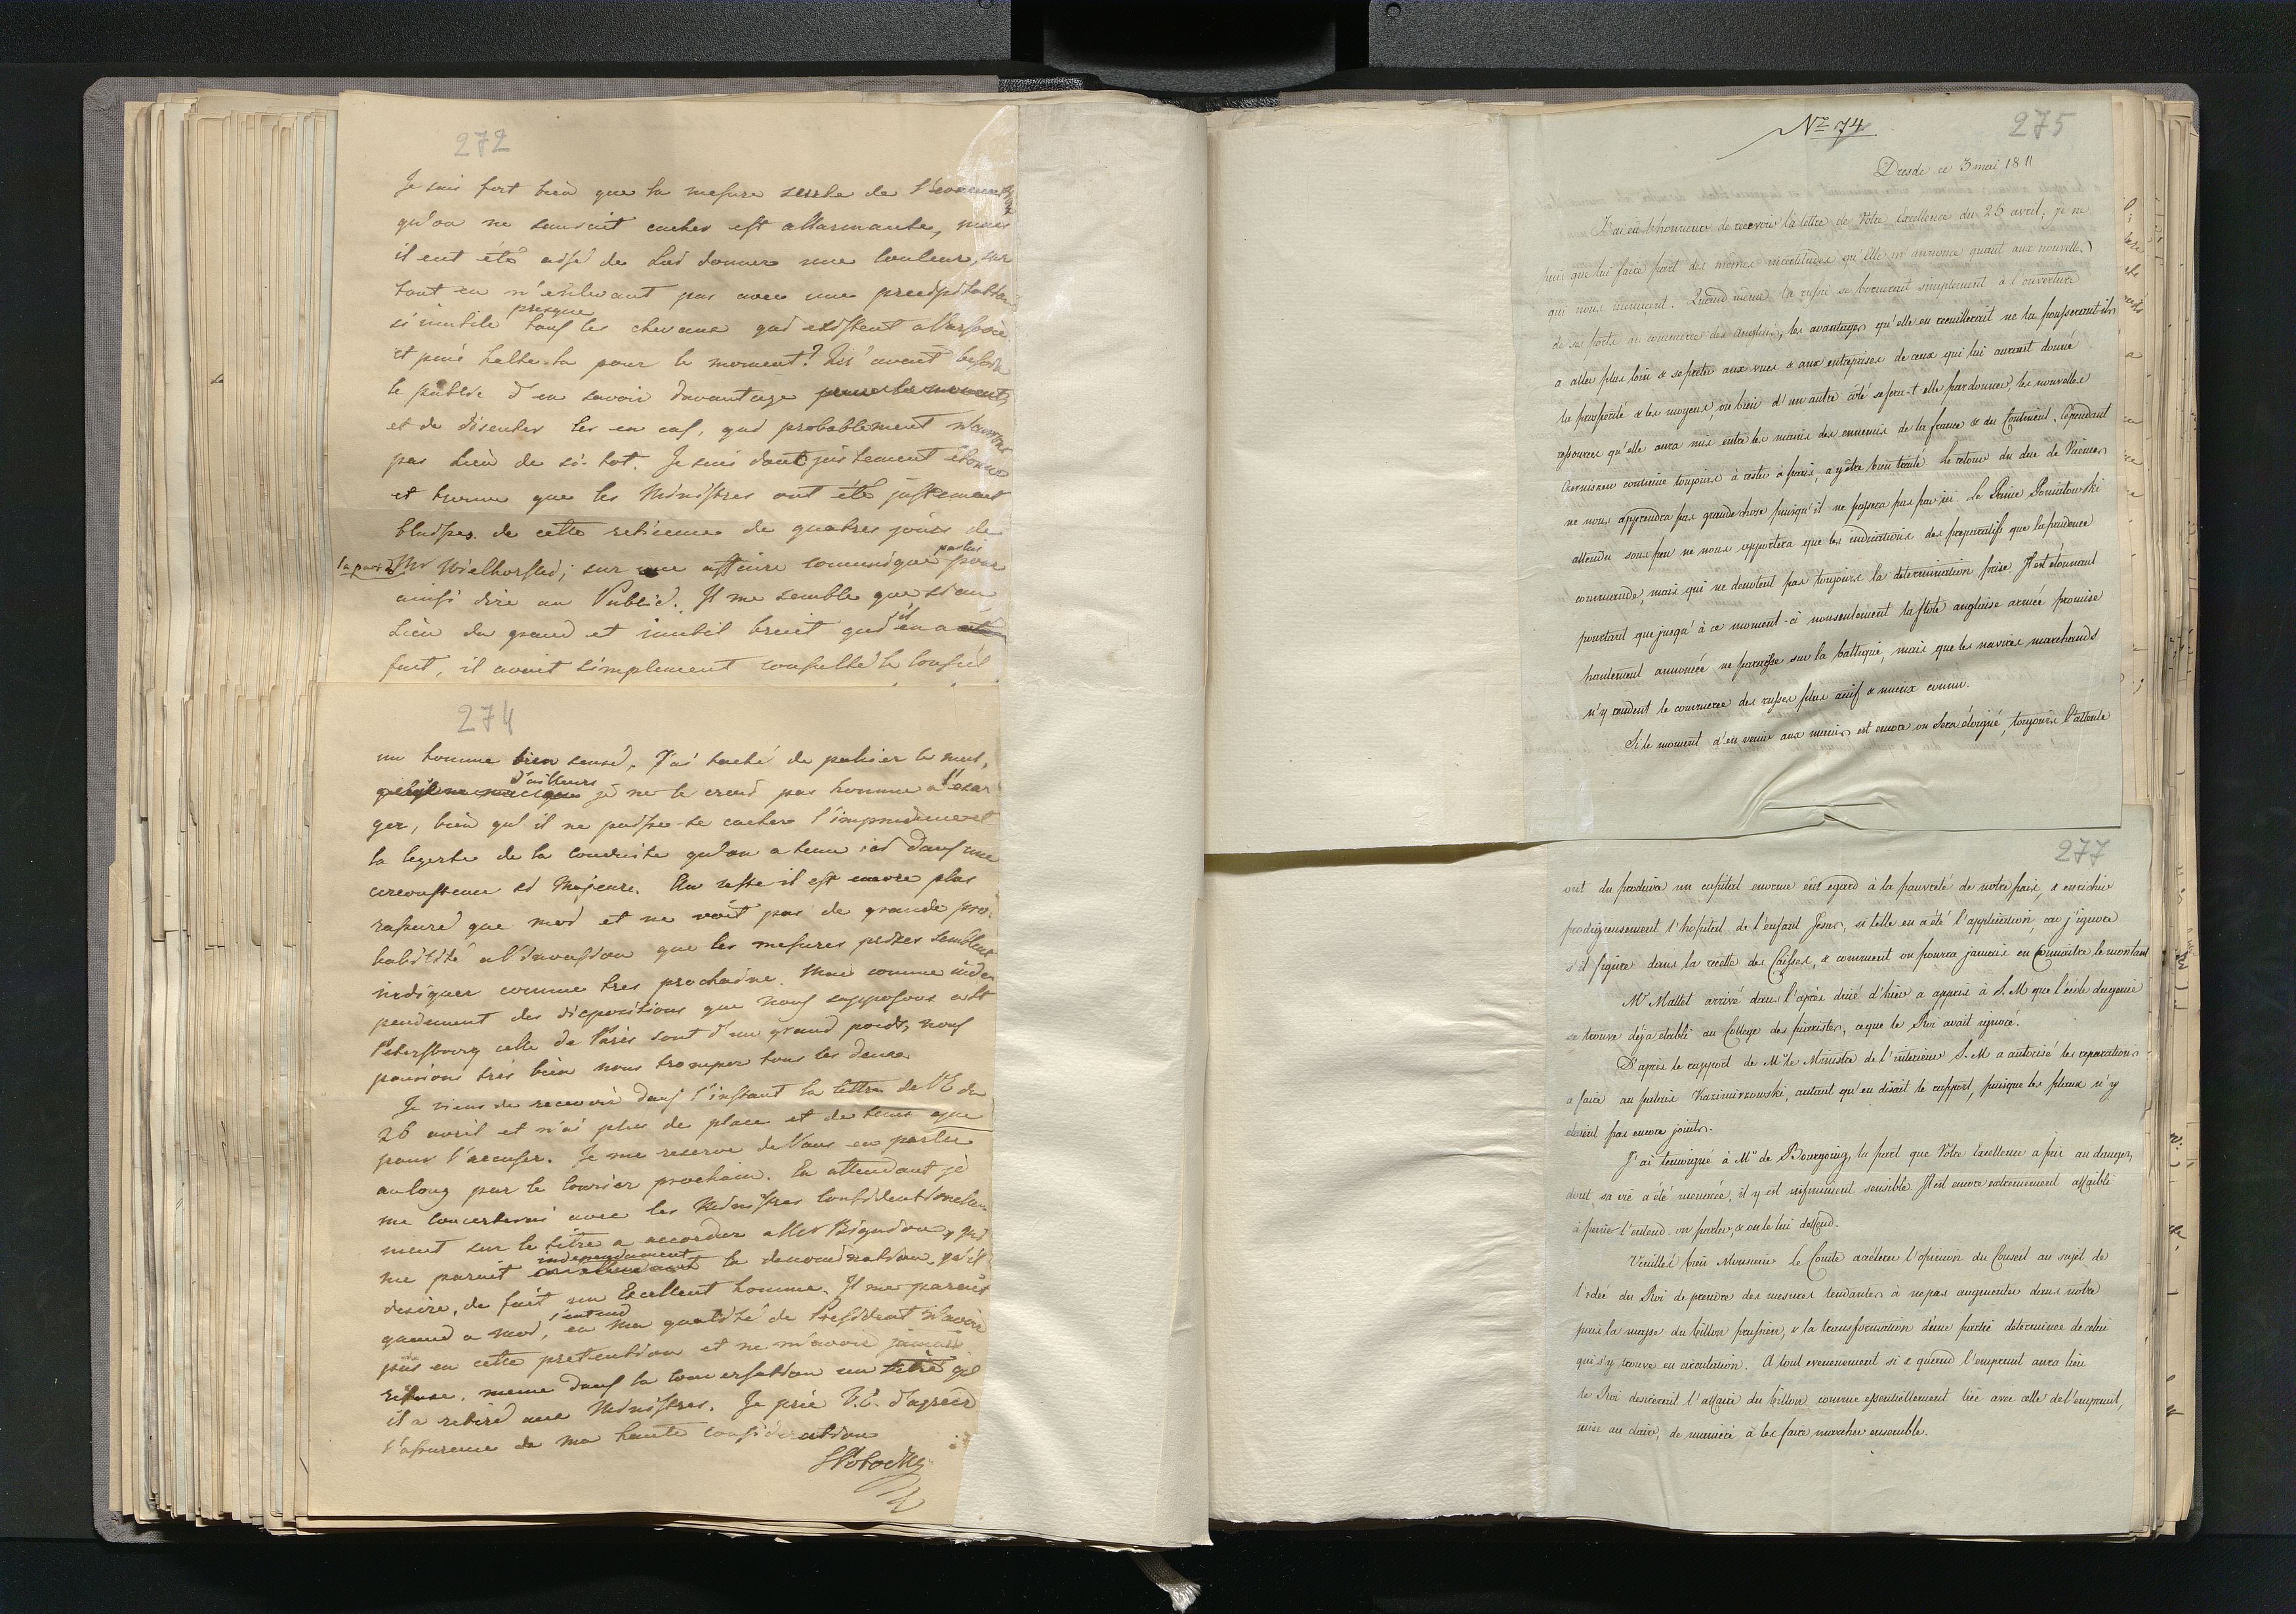 272
Je sais fort bien que la mesure seule de l'évacuation
qu'on ne sauroit cacher est allarmante, mais
il eut été aisé de lui donner une couleur, sur
tout en n'enlevant pas avec une precipitation
si inutile presque tous les chevaux qui existent a Varsovie.
et puis halte-la pour le moment? Qu'avoit besoin
le public d'en savoir davantage pour le moment,
et de discuter les en cas, qui probablement n'auront
pas lieu de si-tot. Je suis dont justement etonné
et trouve que les Ministres ont été justement
blessés de cette reticence de quatres jours de
la part de Mr Wielhorski; sur une affaire comuniquée par lui pour
ainsi dire au Public. Il me semble que si au
lieu du grand et inutil bruit qu'il en a
fait, il avoit simplement consulté le Conseil
274
un homme bien sensé. J'ai taché de palier le mal,
d'ailleurs je ne le crois pas homme a l'exa-
ger, bien qu'il ne puisse se cacher l'imprudence et
la legerte de la conduite qu'on a tenu ici dans une
circonstance si Majeure. Au reste il est encore plus
rassuré que moi et ne voit pas de grande pro-
babilité a l'invasion que les mesures prises semblent
indiquer comme tres prochaine. Mais comme inde-
pendament des dispositions que nous supposons a St
Petersbourg celle de Paris sont d'un grand poids, nous
pouvions très bien nous tromper tous les deux.
Je viens de recevoir dans l'instant la lettre de V.E du
26 avril et n'ai plus de place et de tems que
pour l'accuser. Je me reserve de Vous en parler
au long par le Courier prochain. En attendant je
me concerterai avec les Ministres confidentionelle-
ment sur le titre a accorder a Mr Bignon, qui
me paroit independament la denomination, qu'il
desire, de fait un Excellent homme. Il me paroit
quand a moi, s'entend en ma qualité de President n'avoir
pas eu cette pretention et ne m'avoir jamais
refusé, meme dans la conversation un titre qu'
il a retiré aux Ministres. Je prie V.E. d'agreer
l'assurance de ma haute consideration
SPotocki
Nº 74
275
Dresde ce 3 mai 1811
J'ai eu l'honneur de recevoir la lettre de Votre Excellence du 25 avril, je ne
puis que lui faire part des mêmes incertitudes qu'Elle m'annonce quant aux nouvelles
qui nous viennent. Quand même la russie se bornerait simplement à l'ouverture
de ses ports au commerce des Anglais, les avantages qu'elle en recueillerait ne la pousseraient-ils
a aller plus loin & se preter aux vues & aux entreprises de ceux qui lui auront donné
la prosperité & les moyens, ou bien d'un autre côté se fera-t-elle pardonner les nouvelles
ressources qu'elle aura mis entre les mains des ennemis de la france & du Continent. Cependant
Czernischew continue toujours à rester à paris, a y être bien traité. Le retour du duc de Vicence
ne nous apprendra pas grande chose puisqu'il ne passera pas par ici. Le Prince Poniatowski
attendu sous peu ne nous apportera que les indications des preparatifs que la prudence
commande, mais qui ne denotent pas toujours la determination prise. Il est étonnant
pourtant que jusqu'à ce moment-ci nonseulement la flote anglaise armée promise
hautement annoncée ne paraisse sur la baltique, mais que les navires marchands
n'y rendent le commerce des russes plus actif & mieux connu.
Si le moment d'en venir aux mains est encore ou sera éloigné, toujours l'attente
277
ont du produire un capital enorme eut egard à la pauvreté de notre pais, & enrichir
prodigieusement l'hopital de l'enfant Jesus, si telle en a été l'application, car j'ignore
s'il figure dans la recette des Caisses, & comment on pourra jamais en connaitre le montant
Mr Mallet arrivé dans l'après diné d'hier a appris à S.M que l'école du genie
se trouve déja etabli au College des piaristes, ce que le Roi avait ignoré.
D'après le rapport de Mr le Ministre de l'interieur S.M a autorisé les reparations
a faire au palais Kazimirowski, autant qu'en disait le rapport, puisque les plans n'y
etaient pas encore joints.
J'ai temoigné à Mr de Bourgoing, la part que Votre Excellence a pris au danger,
dont sa vie a été menacée, il y est infiniment sensible. Il est encore extremement affaibli
à peine l'entend on parler, & on le lui deffend.
Veuillés bien Monsieur le Comte accelerer l'opinion du Conseil au sujet de
l'idée du Roi de prendre des mesures tendantes à ne pas augmenter dans notre
pais la masse du billon prussien, & la transformation d'une partie determinée de celui
qui s'y trouve en circulation. A tout evenement si & quand l'emprunt aura lieu
le Roi desirerait l'affaire du billon comme essentiellement liée avec celle de l'emprunt,
mise au clair, de manière à les faire marcher ensemble.